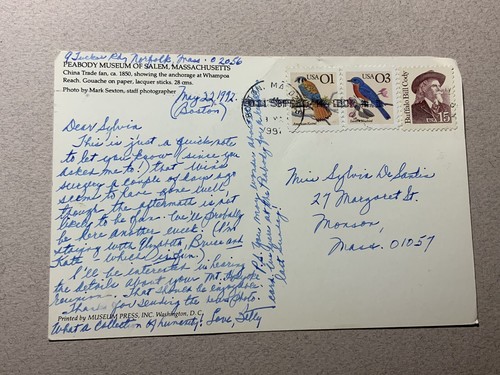 9 Tucker Rd, Norfolk Mass. 02056
PEABODY MUSEUM OF SALEM, MASSACHUSETTS
China Trade fan, ca. 1850, showing the anchorage at Whampoa
Reach. Gouache on paper, lacquer sticks. 28 cms.
Photo by Mark Sexton, staff photographer
May 22, 1992.
(Boston)
Dear Sylvia
This is just a quick note
to let you know (since you
asked me to!) that Miss
surgery a couple of days ago
seems to have gone well
though the aftermath is not
likely to be fun. We'll probably
be here another week. (I'm
staying with Bruce and
Kath – which is fun.)
I'll be interested in hearing
the details about your Mt. Holyoke
reunion. That should be enjoyable.
Thanks for sending the news photo.
What a collection of humanity! Love,
Printed by MUSEUM PRESS, INC. Washington, D.C.
P.S. You may have missed
card at the Peabody
last
MA
1992
USA 01
USA 03
Buffalo Bill Cody
USA 15
Miss Sylvia DeSantis
27 Margaret St.
Monson,
Mass. 01057